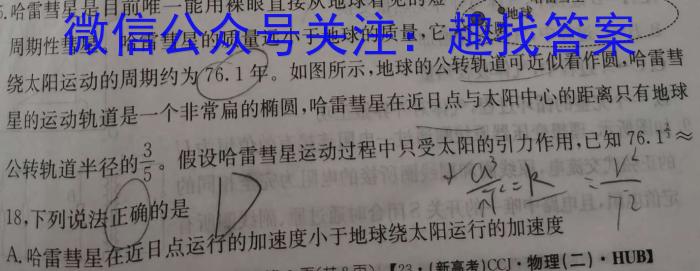 5.哈雷彗星是目前唯一能用裸眼直接从地球看见的短
地球
周期性彗星,哈雷彗星的质量远小于地球的质量,它
微信公众号关注:趣找答案
绕太阳运动的周期约为76.1年。如图所示,地球的公转轨道可近似看作圆,哈雷彗
星的运动轨道是一个非常扁的椭圆,哈雷彗星在近日点与太阳中心的距离只有地球
公转轨道半径的3/5。假设哈雷彗星运动过程中只受太阳的引力作用,已知76.1^{2/3}≈
18,下列说法正确的是
A.哈雷彗星在近日点运行的加速度小于地球绕太阳运行的加速度
【23·(新高考)CCJ·物理(二)·HUB】